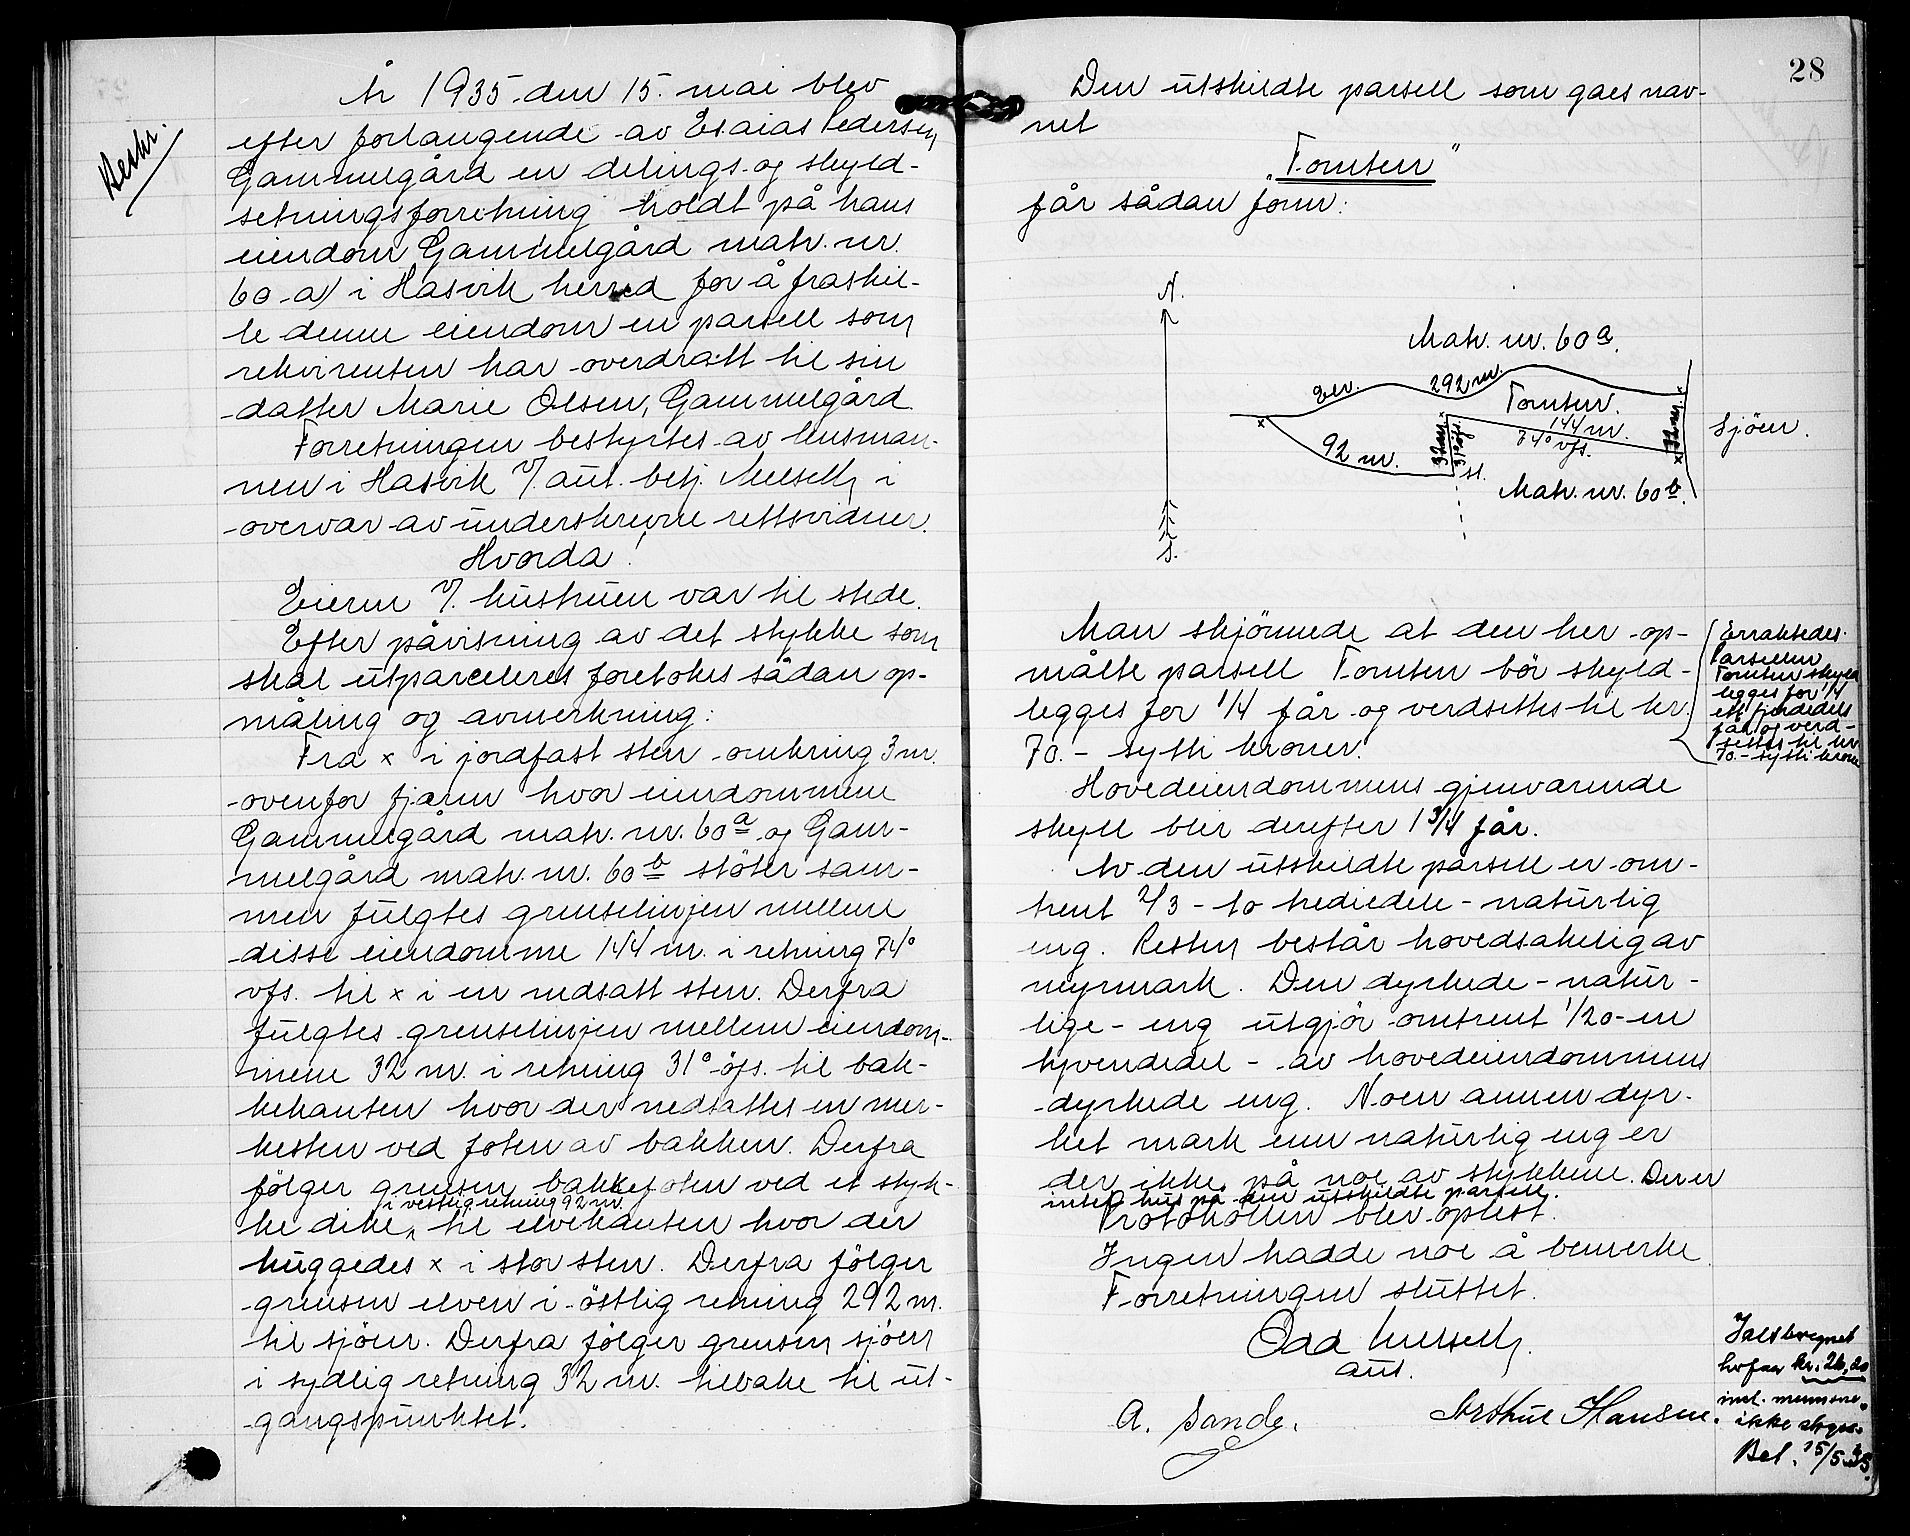 Beskr.
År 1935 den 15. mai blev
efter forlangende av Esaias Pedersen,
Gammelgård en delings- og skyld-
setningsforretning holdt på hans
eiendom Gammelgård matr. nr.
60 a) i Hasvik herred for å fraskil-
le denne eiendom en parsell som
rekvirenten har overdratt til sin
datter Marie Olsen, Gammelgård.
Forretningen bestyrtes av lensman-
nen i Hasvik v/ aut. betj. i
overvær av underskrevne rettsvidner.
Hvorda!
Eieren v/ hustruen var til stede.
Efter påvisning av det stykke som
skal utparceleres foretokes sådan op-
måling og avmerkning:
Fra x i jordfast sten omkring 3 m.
ovenfor fjæren hvor eiendommene
Gammelgård matr. nr. 60a og Gam-
melgård matr. nr. 60b støter sam-
men fulgtes grenselinjen mellem
disse eiendomme 144 m. i retning 74°
vfs. til x i en nedsatt sten. Derfra
fulgtes grenselinjen mellem eiendom-
mene 32 m. i retning 31° öfs. til bak-
kekanten hvor der nedsattes en mer-
kesten ved foten av bakken. Derfra
følger grensen bakkefoten ved et styk-
i vestlig retning 92 m.
ke dike, til elvekanten hvor der
huggedes x i stor sten. Derfra følger
grensen elven i östlig retning 292 m.
til sjöen. Derfra følger grensen sjöen
i sydlig retning 32 m. tilbake til ut-
gangspunktet.
28
Den utskildte parsell som gaes nav-
net
"Tomten"
får sådan form:
N.
Matr. nr. 60a.
Elv. 292 m.
Tomten.
144 m.
74° vfs.
32 m.
31° öfs.
32 m.
Sjöen.
92 m.
st.
Matr. nr. 60b.
S.
Man skjönnede at den her op-
målte parsell Tomten bör skyld-
legges for 1/4 får og verdsettes til kr.
70.- sytti kroner.
Erraktedes.
Parsellen
Tomten skyld
legges for 1/4
ett fjerdedels
får og verd-
settes til kr
70.- sytti kroner
Hovedeiendommens gjenværende
skyll blir derefter 1 3/4 får.
Av den utskildte parsell er om-
trent 2/3 - to trediedele - naturlig
eng. Resten består hovedsakelig av
myrmark. Den dyrkede - natur-
lige - eng utgjör omtrent 1/20 - en
tyvendedel - av hovedeiendommens
dyrkede eng. Noen annen dyr-
ket mark enn naturlig eng er
der ikke på noe av stykkene. Der er
intet hus på den utskildte parsell.
Protokollen blev oplest.
Ingen hadde noe å bemerke.
Forretningen sluttet.
Odd
aut.
A. Sande. Arthur Hansen.
kr. 26,20
ikke
Bet. 15/5.35.